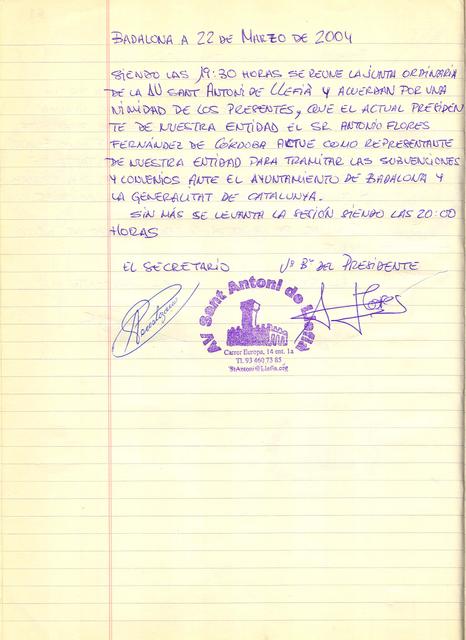 BADALONA A 22 DE MARZO DE 2004
SIENDO LAS 19:30 HORAS SE REUNE LA JUNTA ORDINARIA
DE LA AV SANT ANTONI DE LLEFIÀ Y ACUERDAN POR UNA
NIMIDAD DE LOS PRESENTES, QUE EL ACTUAL PRESIDEN
TE DE NUESTRA ENTIDAD EL SR. ANTONIO FLORES
FERNÁNDEZ DE CÓRDOBA ACTUE COMO REPRESENTANTE
DE NUESTRA ENTIDAD PARA TRAMITAR LAS SUBVENCIONES
Y CONVENIOS ANTE EL AYUNTAMIENTO DE BADALONA Y
LA GENERALITAT DE CATALUNYA.
SIN MÁS SE LEVANTA LA SESIÓN SIENDO LAS 20:00
HORAS
EL SECRETARIO Vº Bº DEL PRESIDENTE
AV Sant Antoni de Llefià
A Flores
Carrer Europa, 14 ent. 1a
Tl. 93 460 73 85
StAntoni@Llefia.org